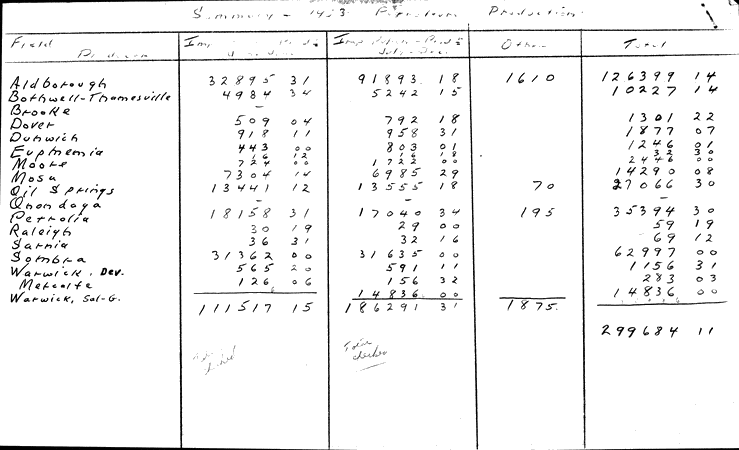 Summary - 1953 Petroleum Production
Field Imp. Prod'n Other Total
Producer July-Dec
Aldborough 32895 31 91893 18 1610 126399 14
Bothwell-Thamesville 4984 34 5242 15 10227 14
Brooke -
Dover 509 04 792 18 1301 22
Dunwich 918 11 958 31 1877 07
Euphemia 443 00 803 01 1246 01
16 12 16 18 32 30
Moore 724 00 1722 00 2446 00
Mosa 7304 14 6985 29 14290 08
Oil Springs 13441 12 13555 18 70 27066 30
Onondaga - - -
Petrolia 18158 31 17040 34 195 35394 30
Raleigh 30 19 29 00 59 19
Sarnia 36 31 32 16 69 12
Sombra 31362 00 31635 00 62997 00
Warwick, Dev. 565 20 591 11 1156 31
Metcalfe 126 06 156 32 283 03
Warwick, Sal-G. 14836 00 14836 00
111517 15 186291 31 1875
299684 11
Total
checked